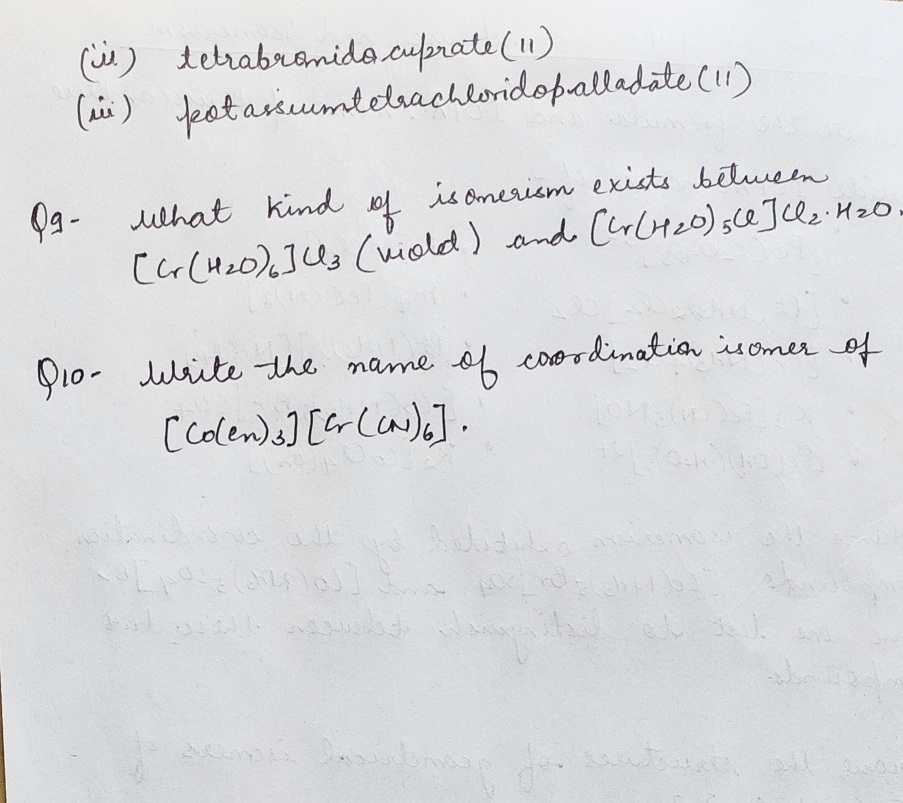 (ii) tetrabromidocuprate (II)
(iii) potassiumtetrachloridopalladate (II)
Q9- What kind of isomerism exists between
[Cr(H2O)6]Cl3 (violed) and [Cr(H2O)5Cl]Cl2·H2O.
Q10- Write the name of coordination isomer of
[Co(en)3][Cr(CN)6].